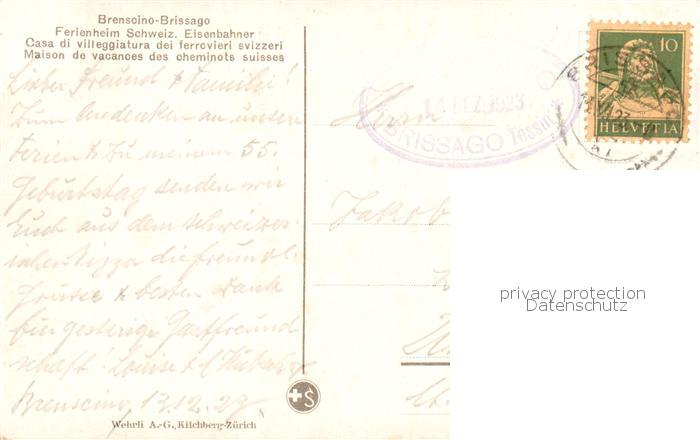 Brenscino-Brissago
Ferienheim Schweiz. Eisenbahner
Casa di villeggiatura dei ferrovieri svizzeri
Maison de vacances des cheminots suisses
Lieber Freund & Familie!
Zum Andenken an unsere
Ferien & zu meinem 55.
Geburtstag senden wir
Euch aus dem schweizer-
ischen Nizza die freundl.
Grüsse & besten Dank
für gestrige Gastfreund
schaft! Louise &
Brenscino, 13.12.23
Wehrli A.-G., Kilchberg-Zürich
Herrn
Jakob
14 DEZ. 1923
BRISSAGO Tessin
10
HELVETIA
privacy protection
Datenschutz